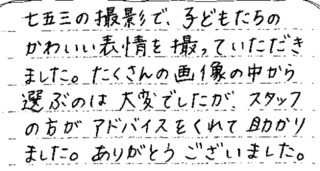 七五三の撮影で、子どもたちの
かわいい表情を撮っていただき
ました。たくさんの画像の中から
選ぶのは大変でしたが、スタッフ
の方がアドバイスをくれて助かり
ました。ありがとうございました。